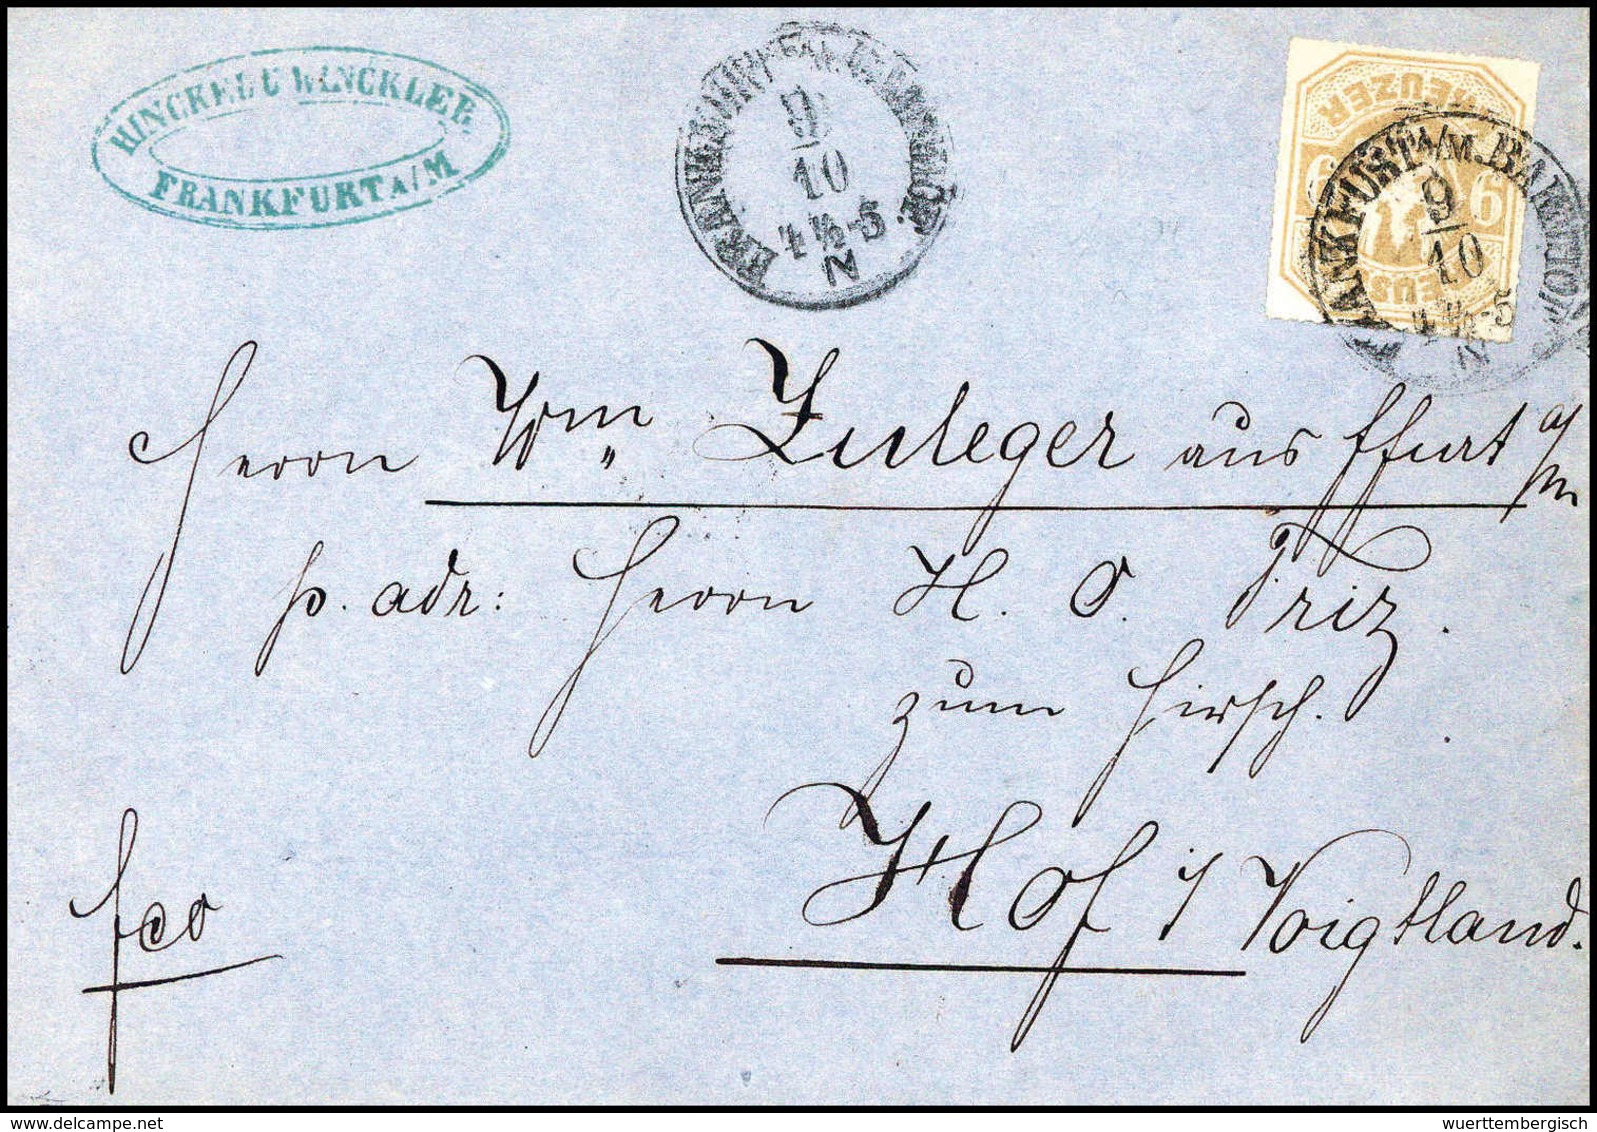 HINCKEL U WINCKLER.
FRANKFURT A/M
FRANKFURT A.M. BAHNHOF.
9
10
4½-5
N
KREUZER
6 6
FRANKFURT A/M. BAHNHOF
9
10
4½-5
N
Herrn Wm Zuleger aus Ffurt a/m
p. adr: Herrn H. O. Triz.
zum Hirsch.
Hof i/ Voigtland.
fco
www.delcampe.net
wuerttembergisch